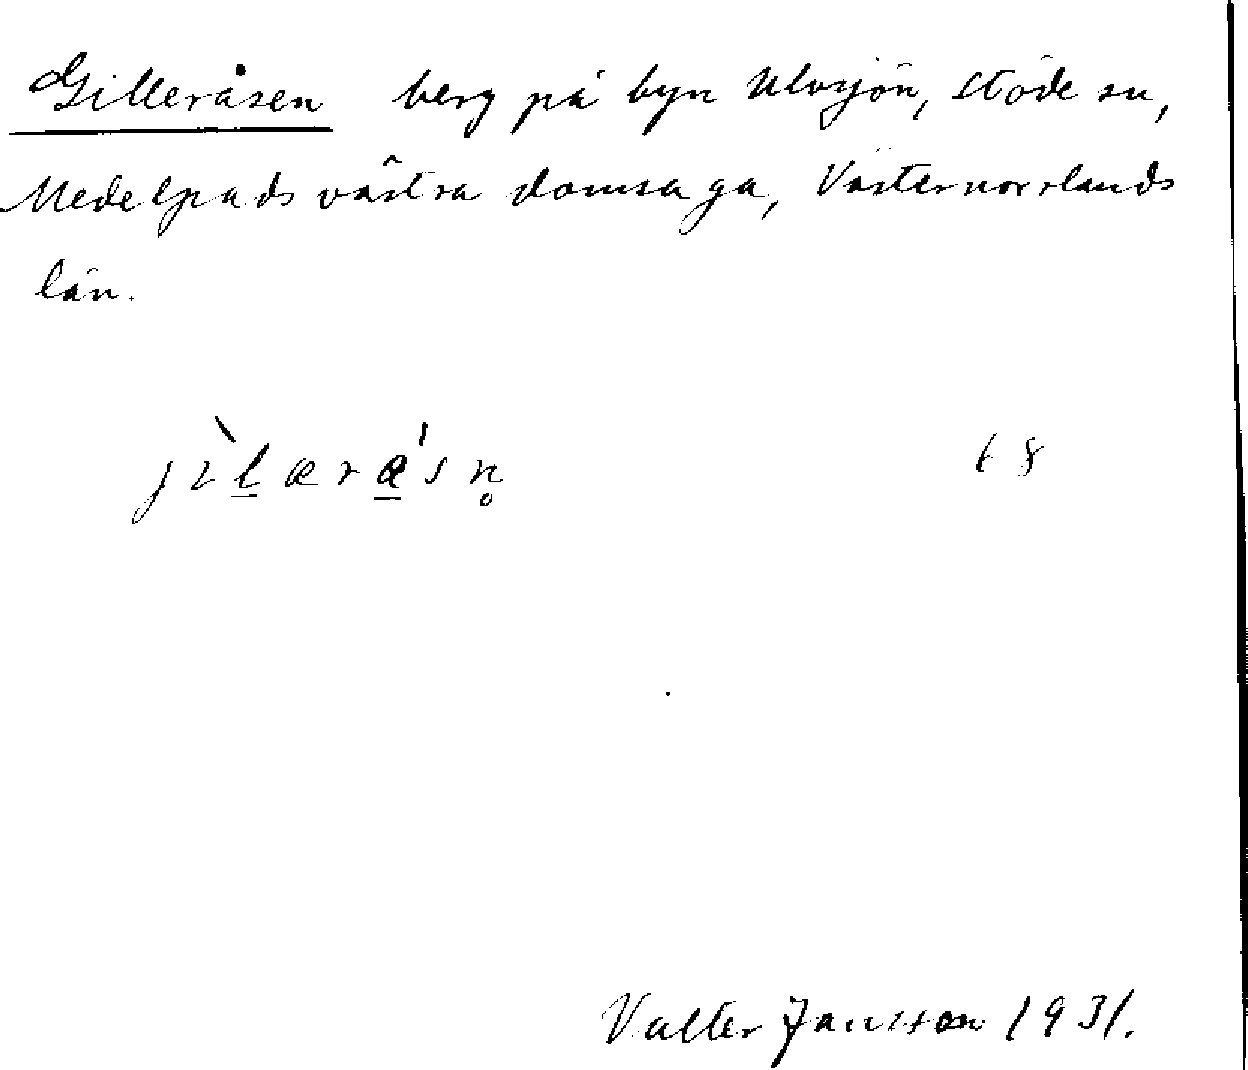 Gilleråsen berg på byn Ulvsjön, Stöde sn,
Medelpads västra domsaga, Västernorrlands
län.
Valter Jansson 1931.